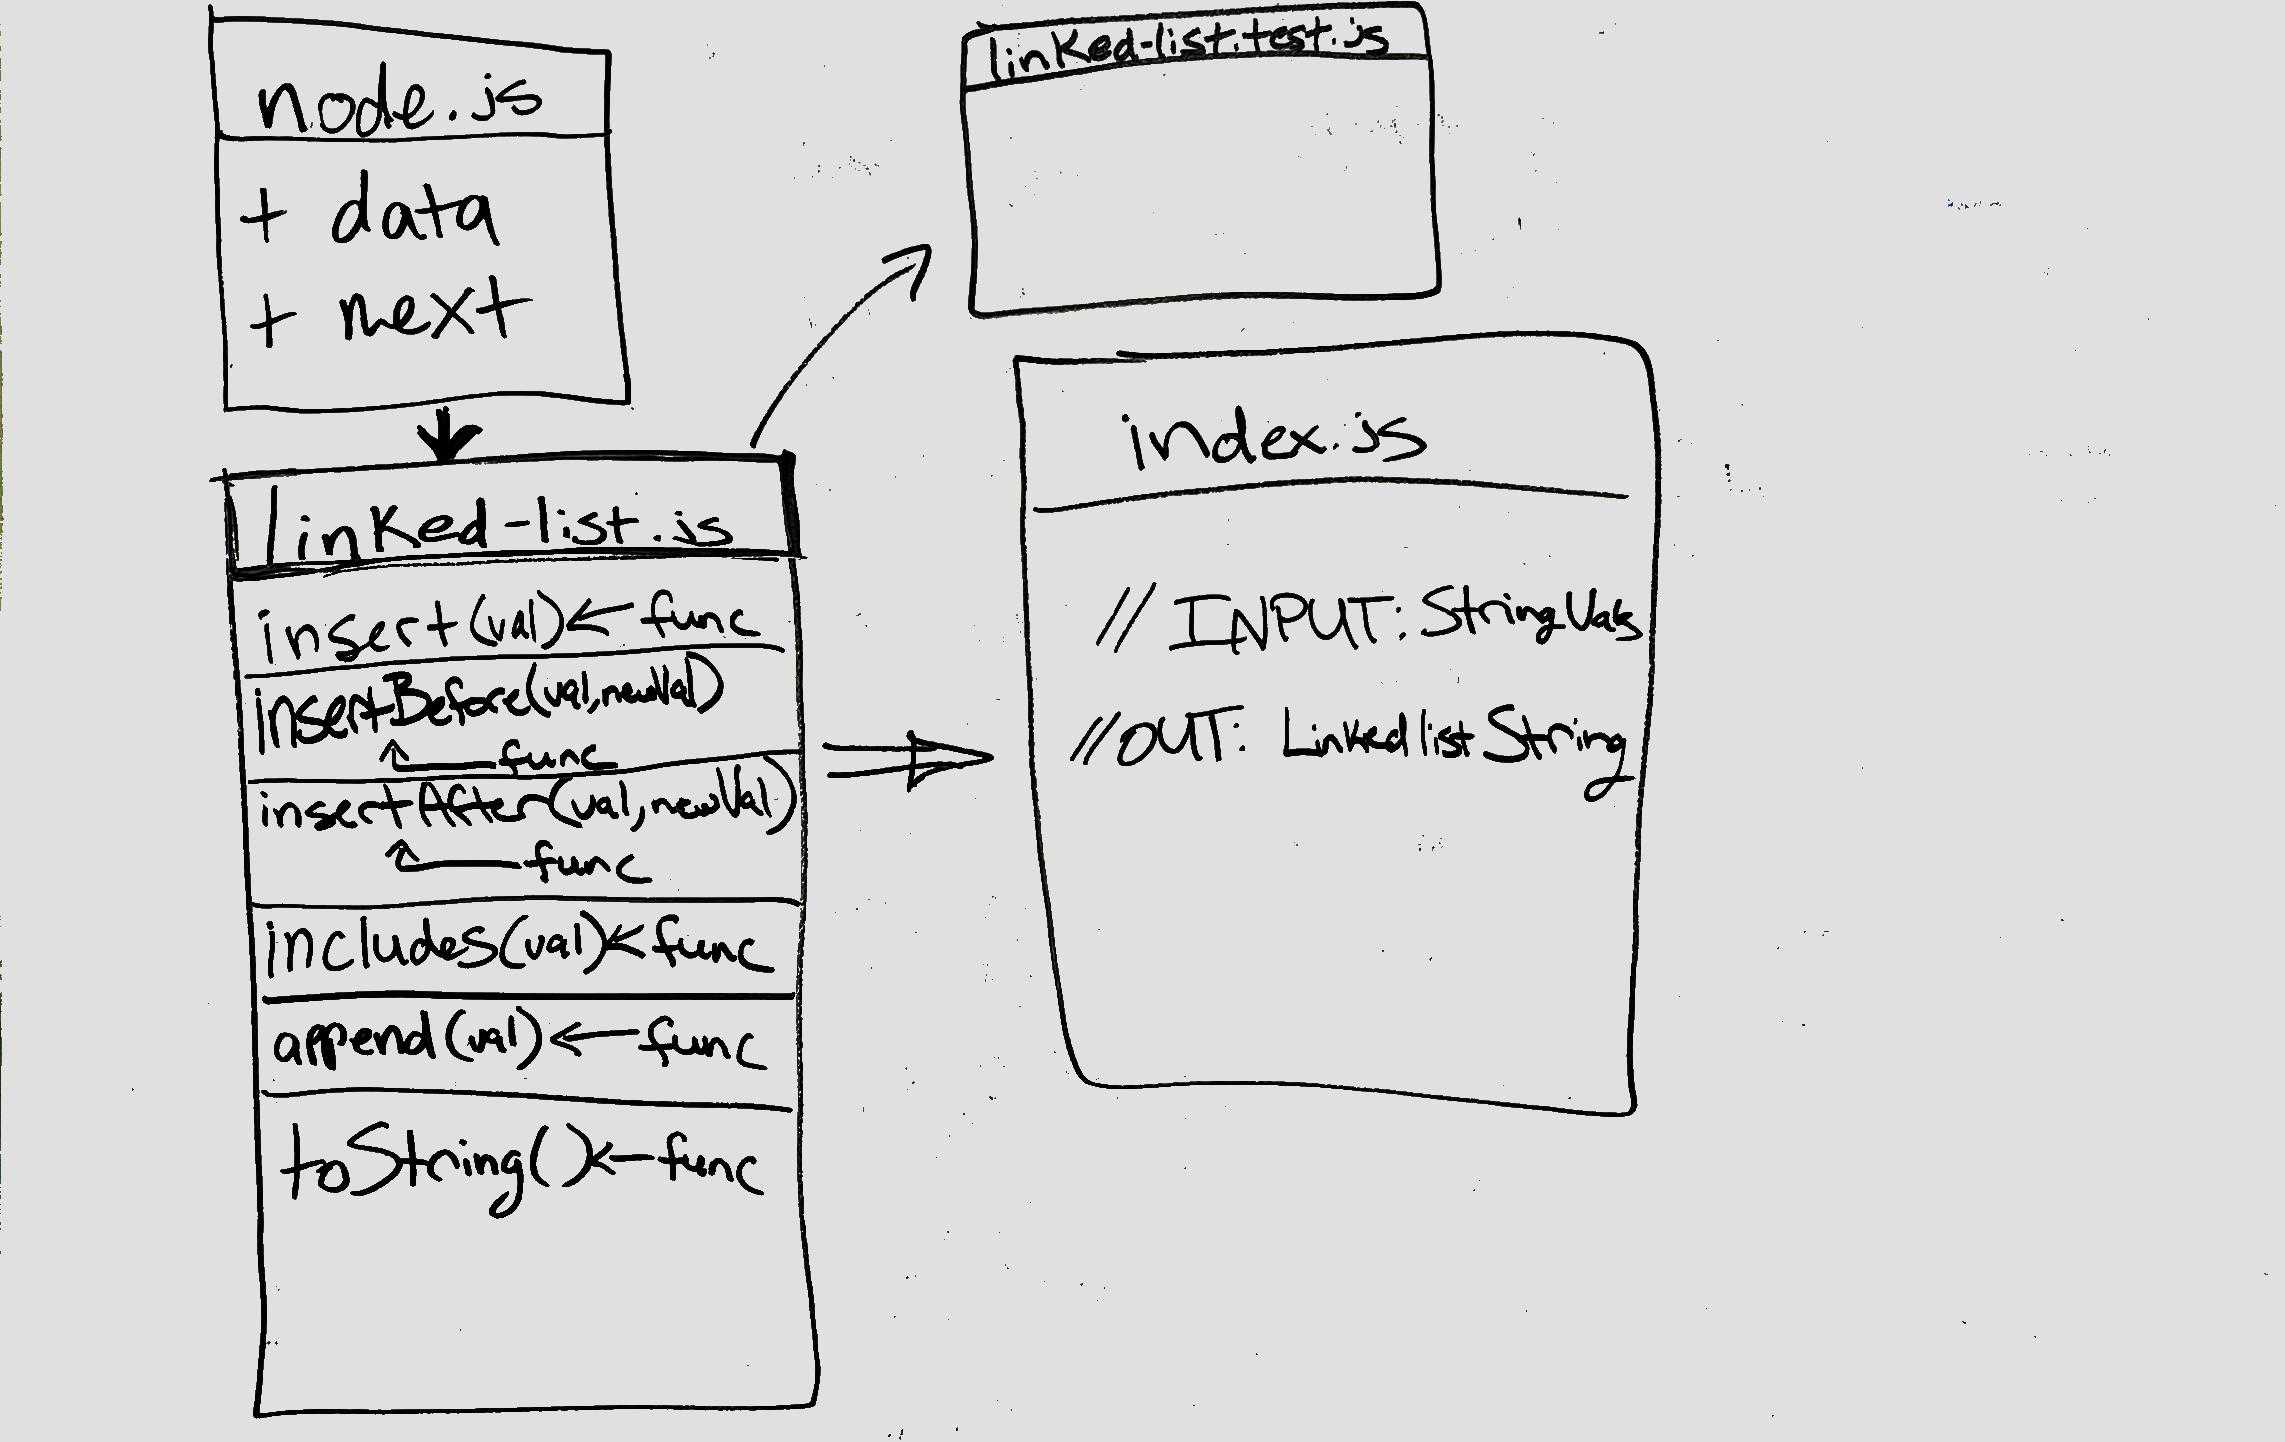 node.js
+ data
+ next
linked-list.js
insert(val) ← func
insertBefore(val,newVal)
func
insertAfter(val,newVal)
func
includes(val) ← func
append(val) ← func
toString() ← func
linked-list.test.js
index.js
// INPUT: StringVals
//OUT: Linked list String